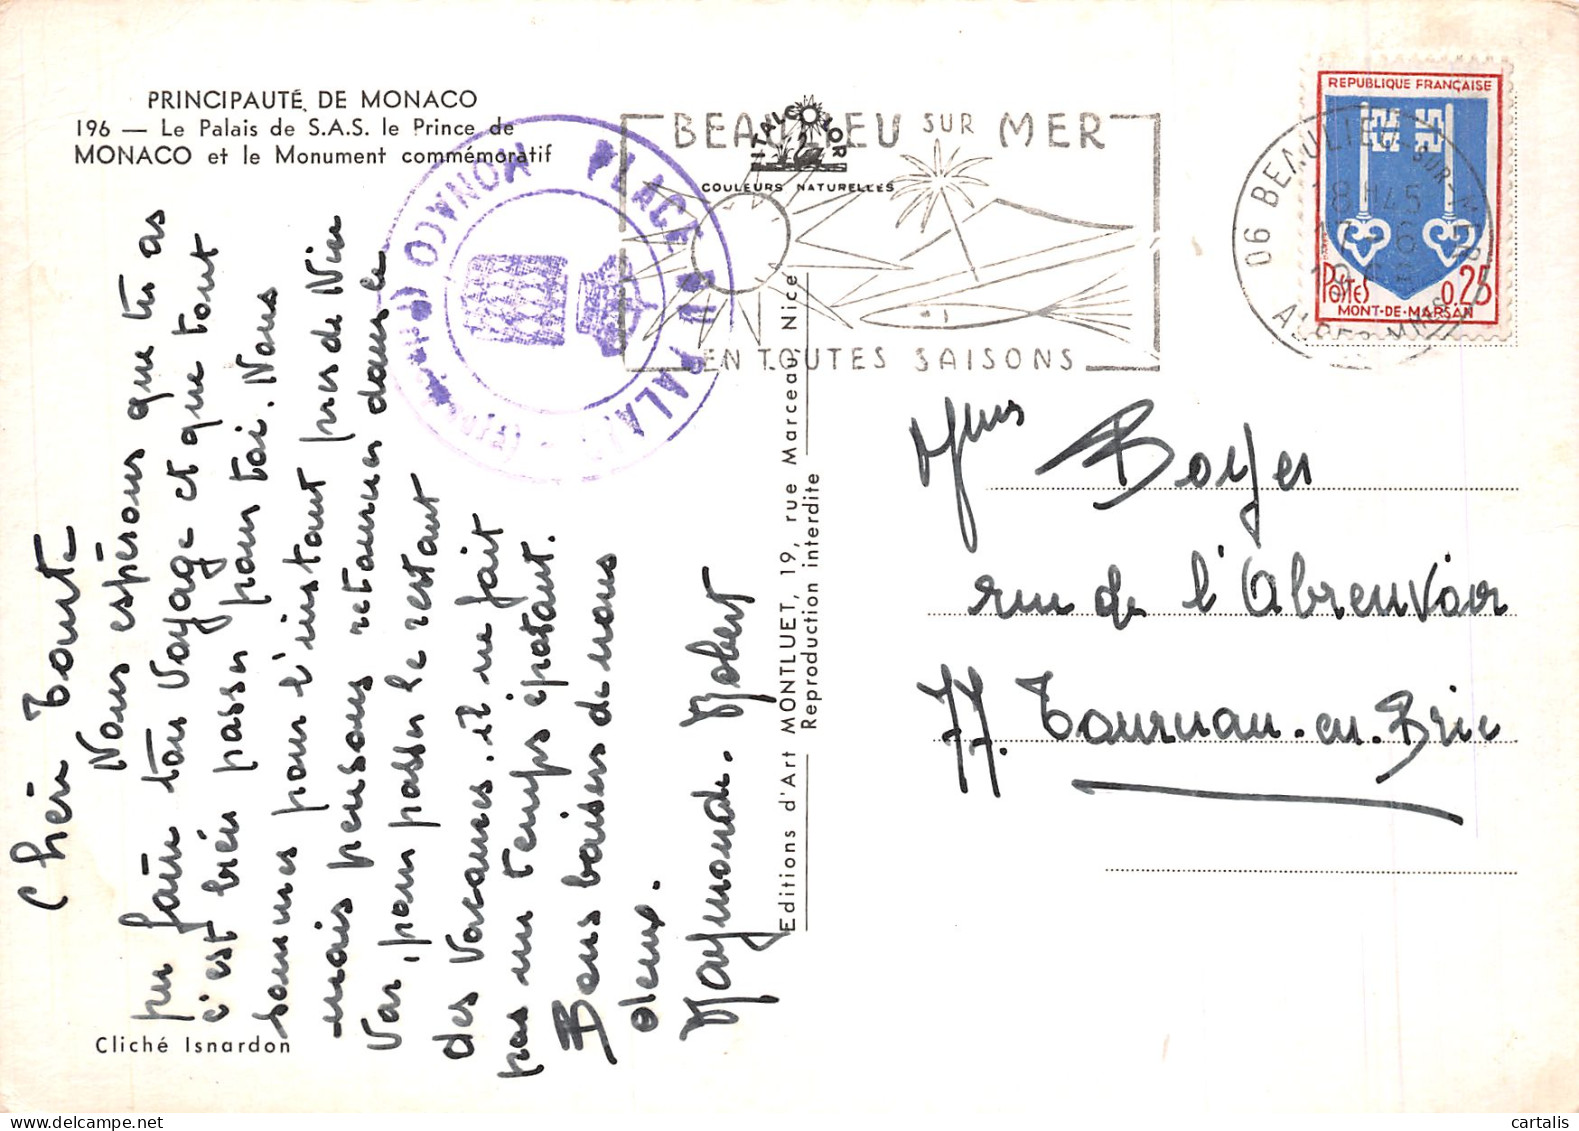 PRINCIPAUTÉ DE MONACO
196 — Le Palais de S.A.S. le Prince de
MONACO et le Monument commémoratif
PLACE DU PALAIS
MONACO
BEAULIEU SUR MER
EN TOUTES SAISONS
ITALCOLOR
COULEURS NATURELLES
06 BEAULIEU-SUR-MER
18H45
ALPES-MMES
REPUBLIQUE FRANÇAISE
POSTES 0,25
MONT-DE-MARSAN
Chère
Nous espérons que tu as
pu faire ton voyage et que tout
c'est bien passé pour toi. Nous
sommes pour l'instant près de Nice
mais pensons retourner dans le
Var, pour passer le restant
des vacances. il ne fait
pas un temps épatant.
Bons baisers de nous
deux.
Raymonde. Robert
Editions d'Art MONTLUET, 19, rue Marceau Nice
Reproduction interdite
Cliché Isnardon
Boyer
rue de l'Abreuvoir
77. Tournan-en-Brie
cartalis